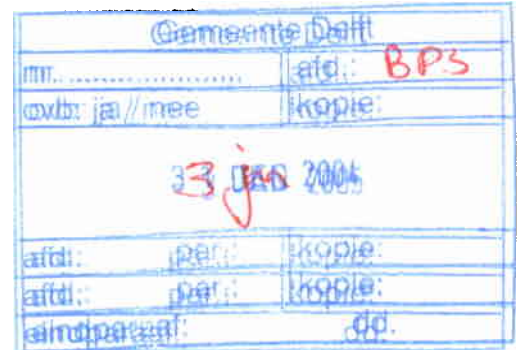 Gemeente Delft
nr. ........................ afd.: BPS
ovb: ja/nee kopie:
3 jan
afd.: par.: kopie:
afd.: par.: kopie:
eindparaaf: dd.